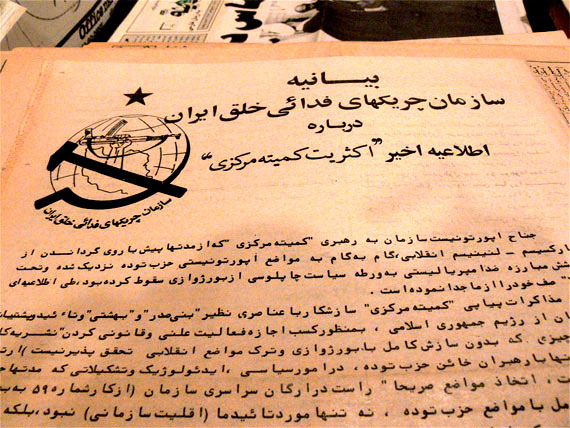 بیـــانیه
سازمان چریکهای فدائی خلق ایران
درباره
اطلاعیه اخیر "اکثریت کمیته مرکزی"
سازمان چریکهای فدائی خلق ایران
جناح اپورتونیست سازمان به رهبری "کمیته مرکزی" که از مدتها پیش با روی گرداندن از
مارکسیسم ـ لنینیسم انقلابی، گام به گام به مواضع اپورتونیستی حزب توده نزدیک شده و تحت
مبارزه ضد امپریالیستی به ورطه سیاست چاپلوسی از بورژوازی سقوط کرده بود، طی اطلاعیه‌ای
صف خود را از ما جدا نموده است.
مذاکرات پیاپی "کمیته مرکزی" سازشکار با عناصری نظیر "بنی‌صدر" و "بهشتی" و تاء ئید و پشتیبانی
از رژیم جمهوری اسلامی، بمنظور کسب اجازه فعالیت علنی و قانونی کردن "نشریه کار
چیزی که بدون سازش کامل با بورژوازی و ترک مواضع انقلابی تحقق پذیر نیست)
با رهبران خائن حزب توده، در امور سیاسی، ایدئولوژیک و تشکیلاتی که مدتها
، اتخاذ مواضع صریحا" راست در ارگان سراسری سازمان (از کار شماره ۵۹ به
با مواضع حزب توده، نه تنها مورد تائید ما (اقلیت سازمانی) نبود، بلکه